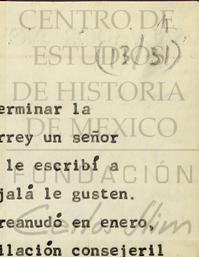 CENTRO DE
ESTUDIOS
(13/31)
DE HISTORIA
erminar la
DE MEXICO
rrey un señor
le escribí a
FUNDACIÓN
jalá le gusten.
Carlos Slim
reanudó en enero,
ilación consejeril